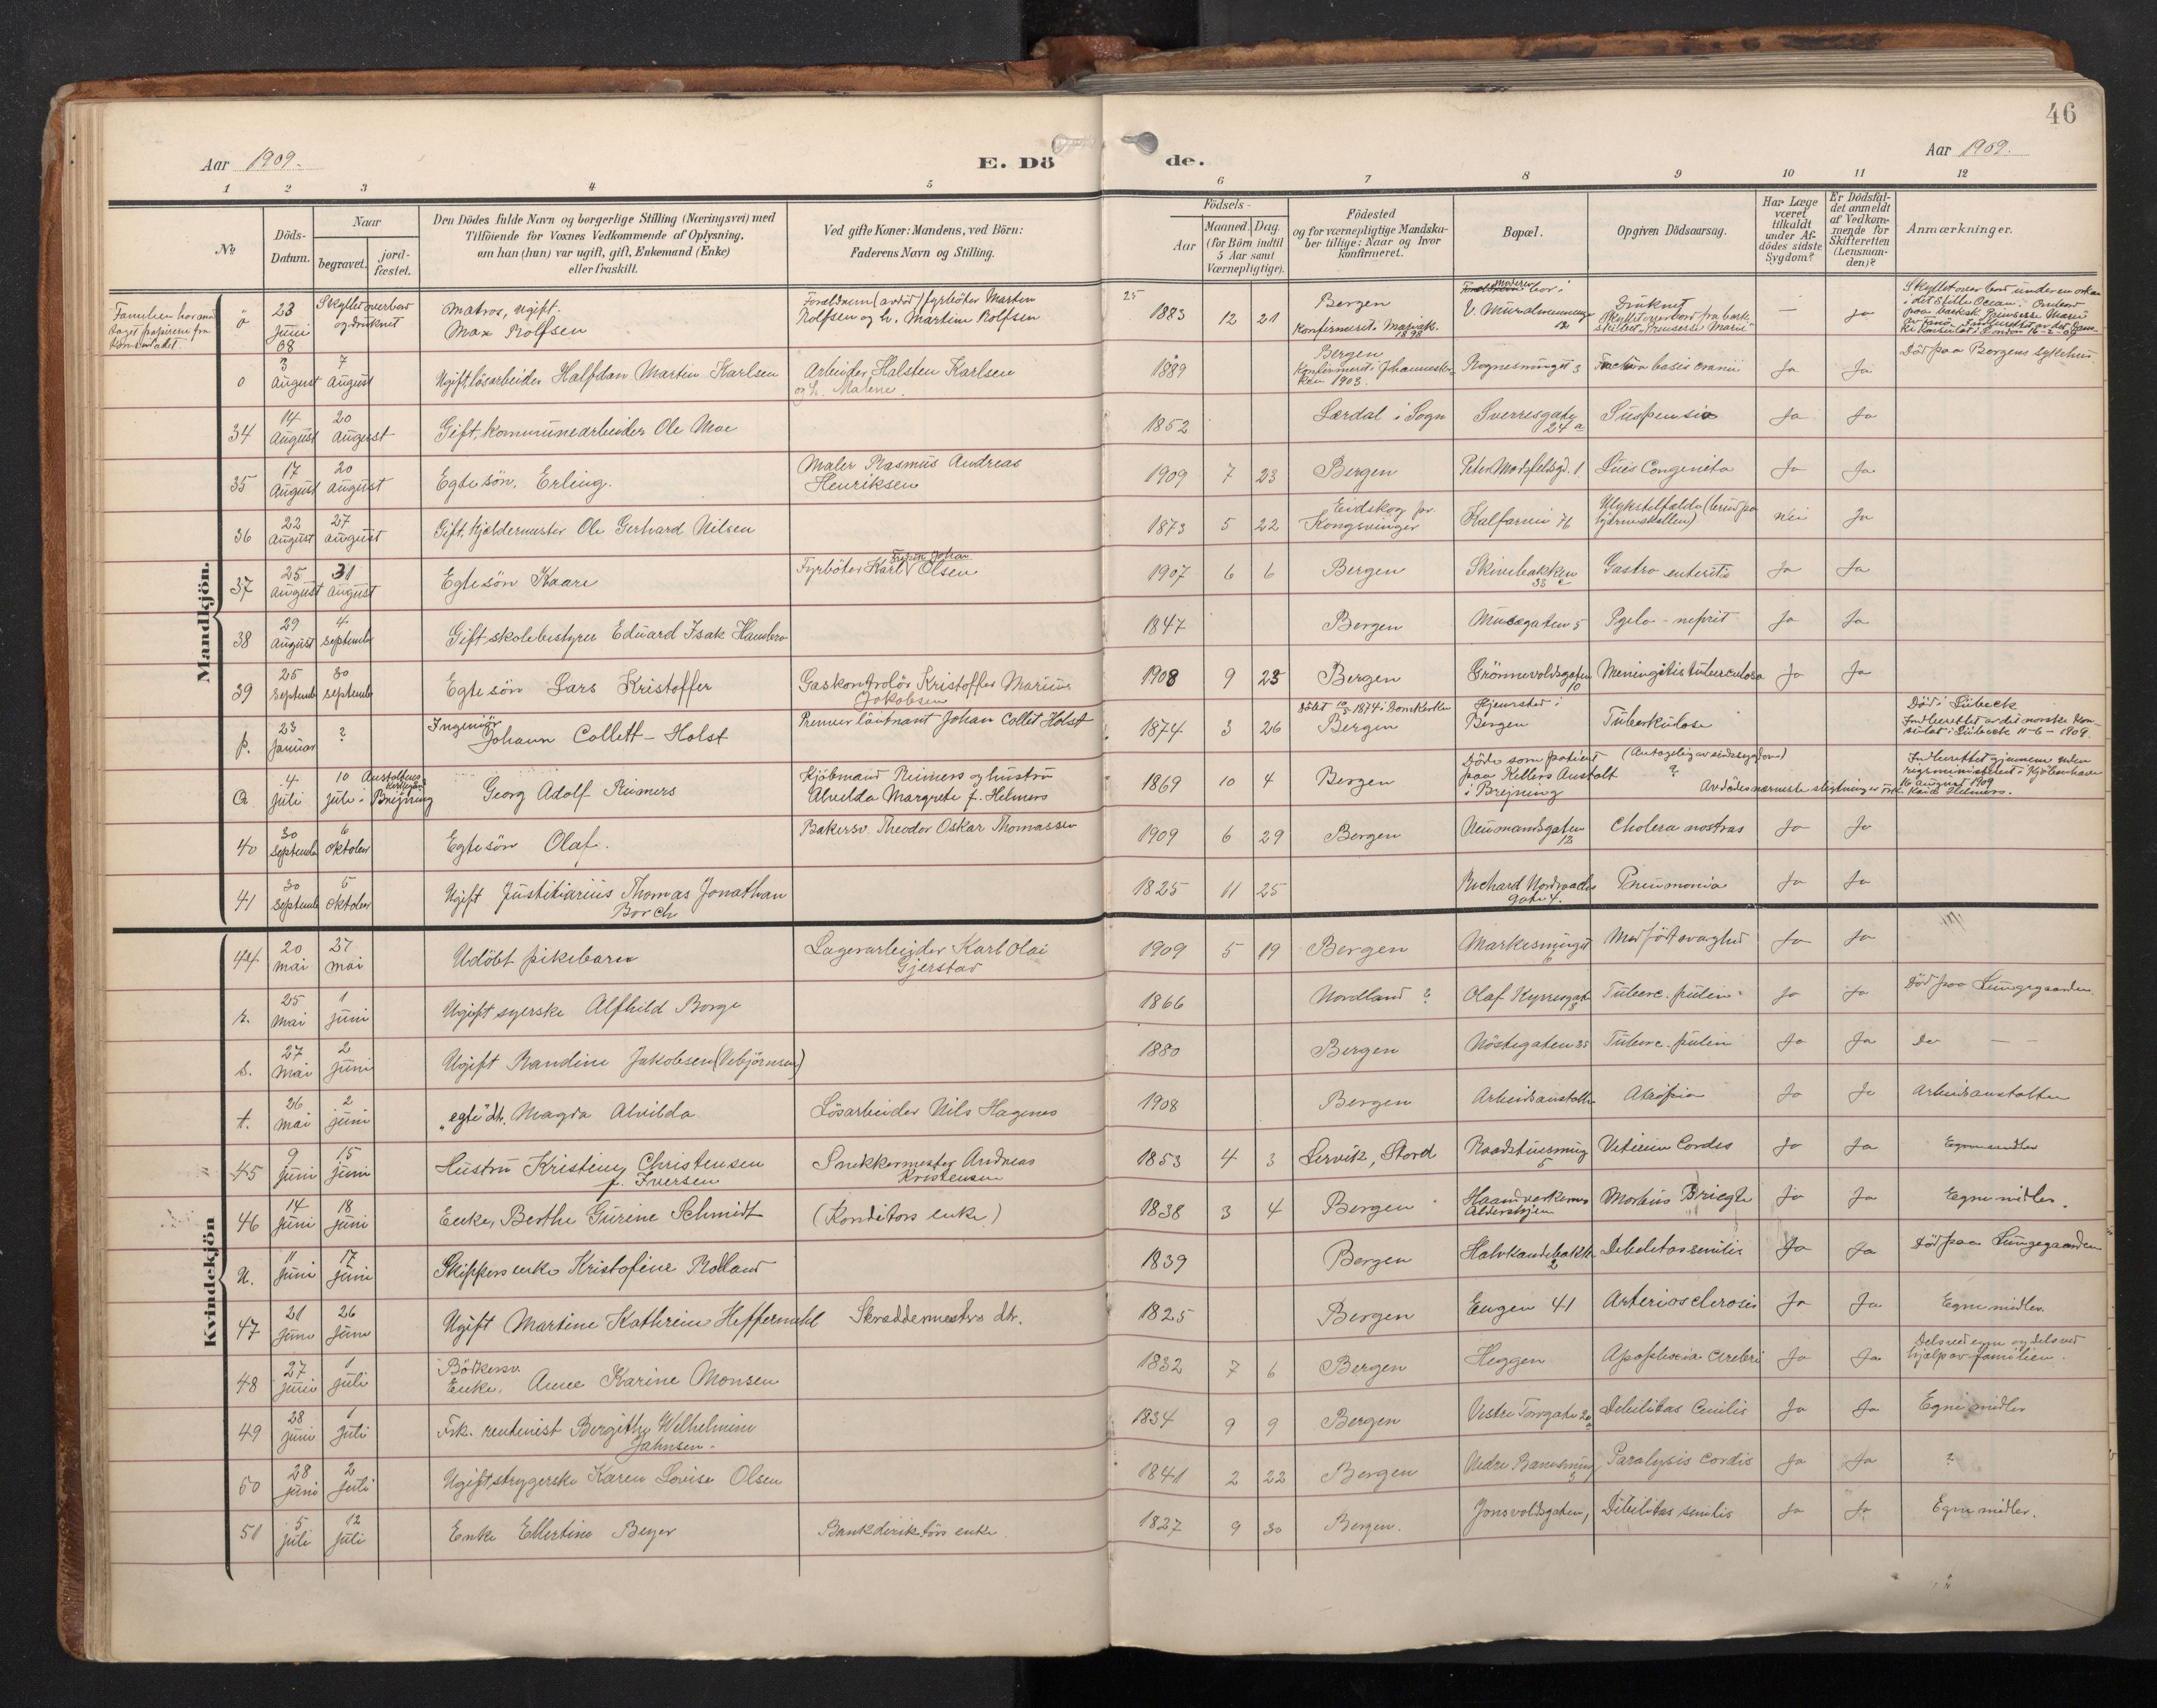 46
Aar 1909.
E. Dö
de.
Aar 1909.
1 2 3 4 5 6 7 8 9 10 11 12
No
Döds-Datum.
Naar
begravet.
jord-fæstet.
Den Dödes fulde Navn og borgerlige Stilling (Næringsvei) med
Tilföiende for Voxnes Vedkommende af Oplysning,
om han (hun) var ugift, gift, Enkemand (Enke)
eller fraskilt.
Ved gifte Koner: Mandens, ved Börn:
Faderens Navn og Stilling.
Födsels-
Aar
Maaned. Dag.
(for Börn indtil
5 Aar samt
Værnepligtige).
Födested
og for værnepligtige Mandska-
ber tillige: Naar og hvor
konfirmeret.
Bopæl.
Opgiven Dödsaarsag.
Har Læge
været
tilkaldt
under Af-
dödes sidste
Sygdom?
Er Dödsfal-
det anmeldt
af Vedkom-
mende for
Skifteretten
(Lensman-
den)?
Anmærkninger.
Mandkjön.
ö 23 Juni 08 Skyllet overbord og druknet Matros, ugift. Max Rolfsen Forældrene (avdöd) fyrböter Martin Rolfsen og h. Martine Rolfsen 1883 12 21 Bergen Konfirmert i Mariak. 1898 Moderen bor i Druknet Skyllet overbord fra barkskibet "Prinsesse Marie" — ja
o 3 August 7 August Ugift, lösarbeider Halfdan Martin Karlsen Arbeider Halsten Karlsen og h. Malene. 1889 Bergen Konfirmert i Johanneskirken 1903. Rognesmuget 3 Fractura basis cranii Ja Ja Död paa Bergens sykehus
34 14 August 20 August Gift, kommunearbeider Ole Moe 1852 Lærdal i Sogn Sverresgate 24 a Suspensio Ja Ja
35 17 August 20 August Egte sön, Erling. Maler Rasmus Andreas Henriksen 1909 7 23 Bergen Peter Motzfeldsgd. 1 Lues Congenita Ja Ja
36 22 August 27 August Gift, Kjeldermester Ole Gerhard Nilsen 1873 5 22 Eidskog pr. Kongsvinger Kalfarvei 76 Ulykkestilfælde Nei Ja
37 25 August 31 August Egte sön Kaare Fyrböter Karl Johan Olsen 1907 6 6 Bergen Skivebakken 33 c Gastro enteritis Ja Ja
38 29 August 4 september Gift skolebestyrer Edvard Isak Hambro 1847 Bergen Musegaten 5 Pyelo-nefrit Ja Ja
39 25 september 30 september Egte sön Lars Kristoffer Gaskontrolör Kristoffer Marius Jakobsen 1908 9 23 Bergen Grönnevoldsgaten 10 Meningitis tuberculosa Ja Ja
p. 23 Januar ? Ingeniör Johann Collett-Holst Premierløitnant Johan Collet Holst 1874 3 26 Döbt 1874 i Domkirken Bergen Hjemsted i Bergen Tuberkulose Död i Lübeck Indberettet av det norske konsulat i Lübeck 11-6-1909.
4 Juli 10 Juli Anstaltens kirkegaard i Brejning Georg Adolf Reimers Kjöbmand Reimers og hustru Alvilda Margrete f. Helmers 1869 10 4 Bergen Döde som patient paa Kellers Anstalt i Brejning ? Avdödes nærmeste slegtning er frk. Kaia Helmers. Indberettet gjennem udenrigsministeriet i Kjöbenhavn 16 August 1909
40 30 september 6 oktober Egte sön Olaf. Bakersv. Theodor Oskar Thomassen 1909 6 29 Bergen Neumandsgaten 12 Cholera nostras Ja Ja
41 30 september 5 oktober Ugift Justitiarius Thomas Jonathan Borch 1825 11 25 Richard Nordraachs gate 4. Pneumonia Ja Ja
Kvindekjön
44 20 mai 27 mai Udöbt pikebarn Lagerarbeider Karl Olai Gjerstad 1909 5 19 Bergen Markesmuget 6 Medfödt svaghed Ja Ja
r. 25 mai 1 juni Ugift syerske Alfhild Borge 1866 Nordland ? Olaf Kyrresgate Tuberc. pulm. Ja Ja Död paa Lungegaarden.
s. 27 mai 2 juni Ugift Randine Jakobsen (Vebjörnsen) 1880 Bergen Nöstegaten 35 Tuberc. pulm Ja Ja Do — —
t. 26 mai 2 juni "egte" dtr. Magda Alvilda Lösarbeider Nils Hagenes 1908 Bergen Arbeidsanstalten Atrofia Ja Ja Arbeidsanstalten
45 9 juni 15 juni Hustru Kristiny Christensen f. Iversen Snekkermester Andreas Kristensen 1853 4 3 Lervik, Stord Raadstuesmug 5 Vitium Cordis Ja Ja Egne midler
46 14 juni 18 juni Enke, Berthe Gurine Schmidt (Konditors enke) 1838 3 4 Bergen Haandverkernes Aldershjem Morbus Brigth Ja Ja Egne midler.
u. 11 juni 17 juni Skippers enke Kristofine Rolland 1839 Bergen Halvkandebakken 2 Debilitas senilis Ja Ja Död paa Lungegaarden
47 21 juni 26 juni Ugift Martine Kathrine Heffermehl Skreddermesters dtr. 1825 Bergen Engen 41 Arteriosclerosis Ja Ja Egne midler.
48 27 juni 1 juli Bödkersv. Enke, Anne Karine Monsen 1832 7 6 Bergen Heggen Apoplexia cerebri Ja Ja Dels ved egne og dels ved hjælp av familien.
49 28 juni 1 juli Frk. rentenist Bergithe Wilhelmine Jahnsen. 1834 9 9 Bergen Vestre Torvgate 20 a Debilitas senilis Ja Ja Egne midler
50 28 juni 2 juli Ugift strygerske Karen Lovise Olsen 1841 2 22 Bergen Nedre 3 Paralysis cordis Ja Ja ?
51 5 juli 12 juli Enke Ellertine Beyer Bankdirektörs enke. 1827 9 30 Bergen. Jonsvoldsgaten, Debilitas senilis Ja Ja Egne midler.